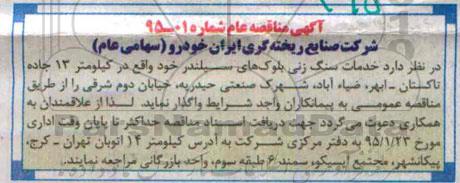 آگهی مناقصه عام شماره ۰۱-۹۵
شرکت صنایع ریخته گری ایران خودرو (سهامی عام)
در نظر دارد خدمات سنگ زنی بلوک‌های سیلندر خود واقع در کیلومتر ۱۳ جاده
تاکستان - ابهر، ضیاء آباد، شهرک صنعتی حیدریه، خیابان دوم شرقی را از طریق
مناقصه عمومی به پیمانکاران واجد شرایط واگذار نماید. لذا از علاقمندان به
همکاری دعوت می‌گردد جهت دریافت اسناد مناقصه حداکثر تا پایان وقت اداری
مورخ ۹۵/۱/۲۳ به دفتر مرکزی شرکت به آدرس کیلومتر ۱۴ اتوبان تهران - کرج،
پیکانشهر، مجتمع آپسیکو، سمند ۶ طبقه سوم، واحد بازرگانی مراجعه نمایند.